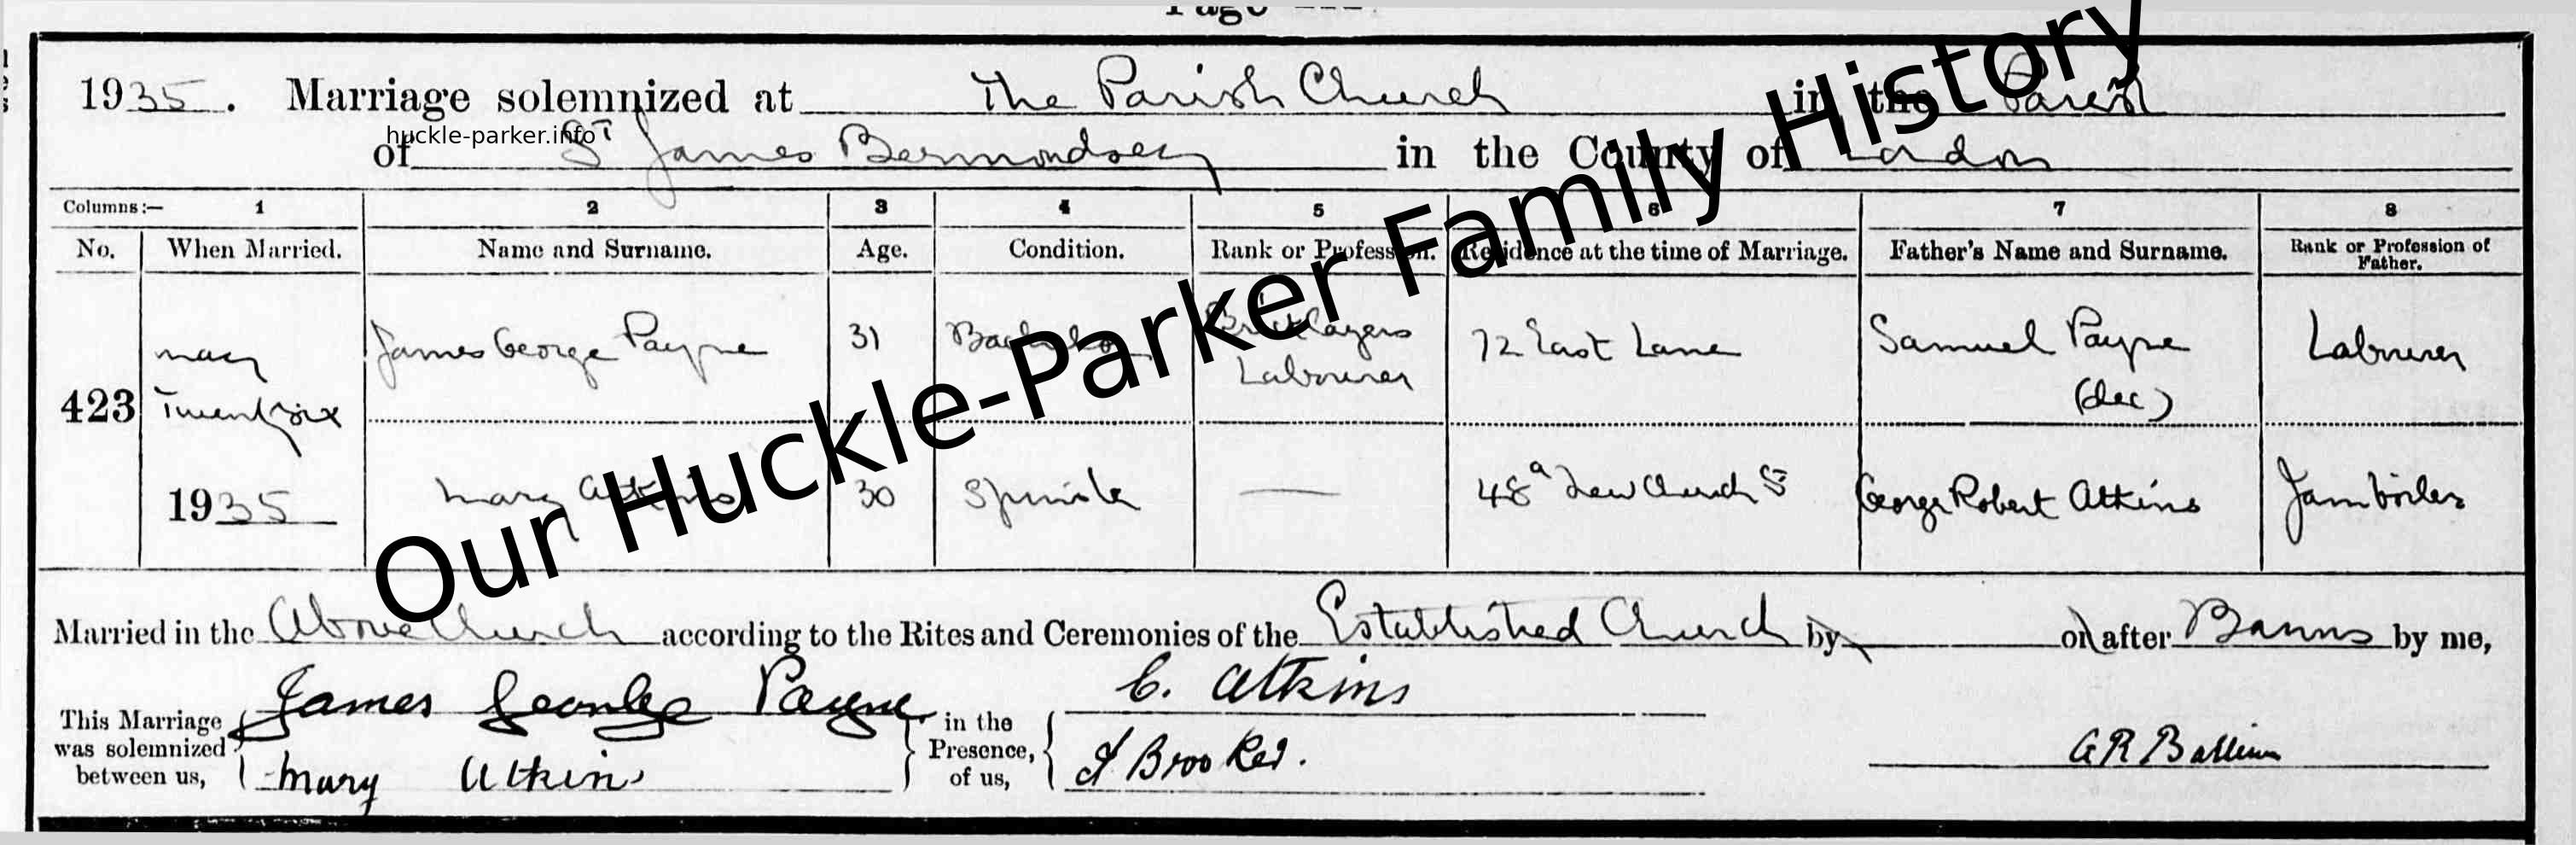 1935. Marriage solemnized at The Parish Church in the Parish
huckle-parker.info
of St James Bermondsey in the County of London
Columns:— 1 2 3 4 5 6 7 8
No. When Married. Name and Surname. Age. Condition. Rank or Profession. Residence at the time of Marriage. Father's Name and Surname. Rank or Profession of Father.
423
May
Twentysix
1935
James George Payne 31 Bachelor Bricklayers Labourer 72 East Lane Samuel Payne (dec) Labourer
Mary Atkins 30 Spinster — 48a New Church St George Robert Atkins Jam boiler
Our Huckle-Parker Family History
Married in the Above Church according to the Rites and Ceremonies of the Established Church by or after Banns by me,
This Marriage was solemnized between us,
James George Payne
Mary Atkins
in the Presence, of us,
C. Atkins
Brookes.